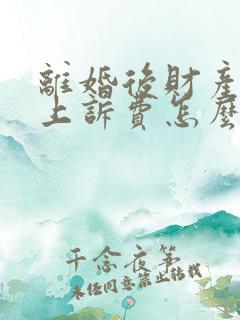 離婚後財產
上訴費怎麼
千念夜箏
未經同意禁止轉載